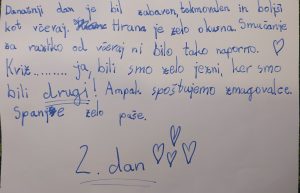 Današnji dan je bil zabaven, tekmovalen in boljši
kot včeraj. Hrana je zelo okusna. Smučanje
za razliko od včeraj ni bilo tako naporno. ♡
Kviz......... ja, bili smo zelo jezni, ker smo
bili drugi! Ampak spoštujemo zmagovalce.
Spanje zelo paše.
2. dan ♡♡♡♡